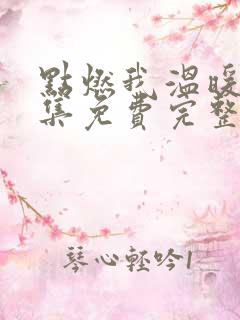 點燃我,溫暖
集免費完整
琴心輕吟1